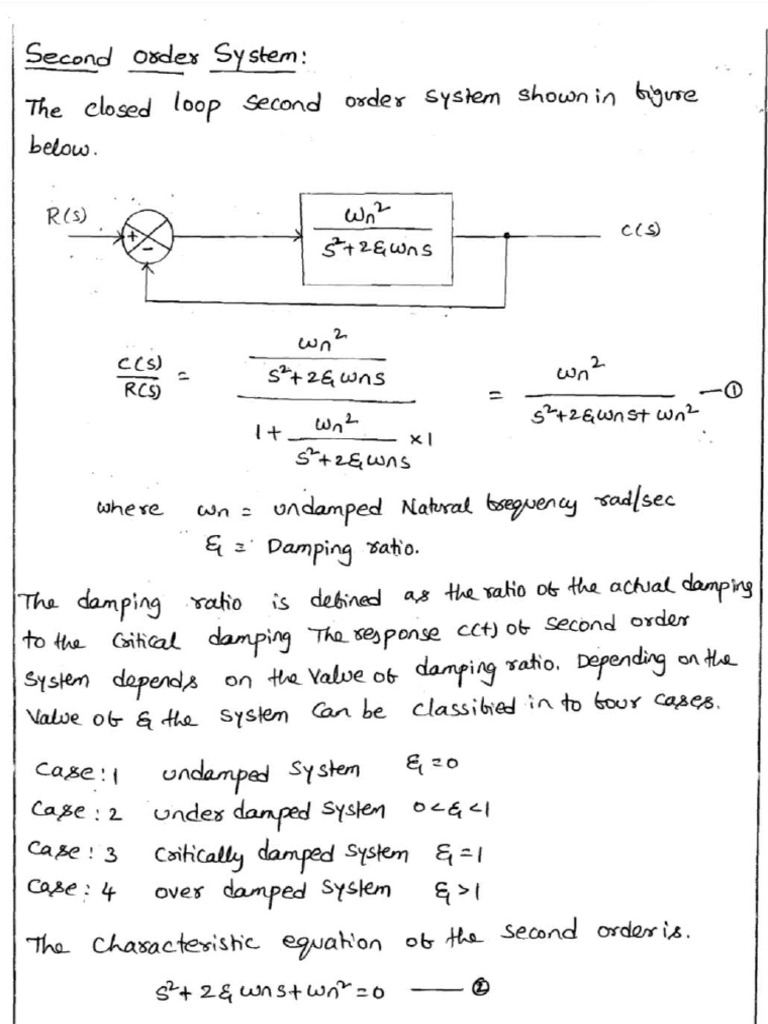 Second order System:
The closed loop second order system shown in figure
below.
R(s)
+
-
ωn²
s²+2ξωns
C(s)
C(s)/R(s) = (ωn²/(s²+2ξωns))/(1+ωn²/(s²+2ξωns) ×1) = ωn²/(s²+2ξωns+ωn²) —①
where ωn = undamped Natural frequency rad/sec
ξ = Damping ratio.
The damping ratio is defined as the ratio of the actual damping
to the Critical damping The response c(t) of second order
System depends on the Value of damping ratio. Depending on the
Value of ξ the system Can be classified in to four cases.
Case:1 undamped System ξ=0
Case:2 under damped System 0<ξ<1
Case:3 Critically damped System ξ=1
Case:4 over damped System ξ>1
The Characteristic equation of the second order is.
s²+2ξωns+ωn²=0 —②